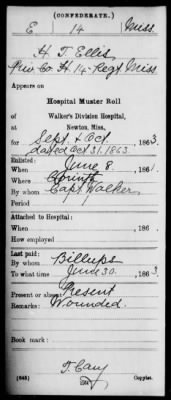 (CONFEDERATE.)
E 14 Miss.
H T Ellis
Priv Co H, 14 Regt Miss
Appears on
Hospital Muster Roll
of
Walker's Division Hospital,
Newton, Miss.,
for Sept & Oct, 1863
dated Oct 31, 1863.
Enlisted:
When June 8, 186
Where Corinth
By whom Capt Walker
Period
Attached to Hospital:
When , 186 .
How employed
Last paid:
By whom Billups
To what time June 30, 1863
Present or absent Present
Remarks: Wounded.
Book mark:
T. Cary
(645) Copyist.